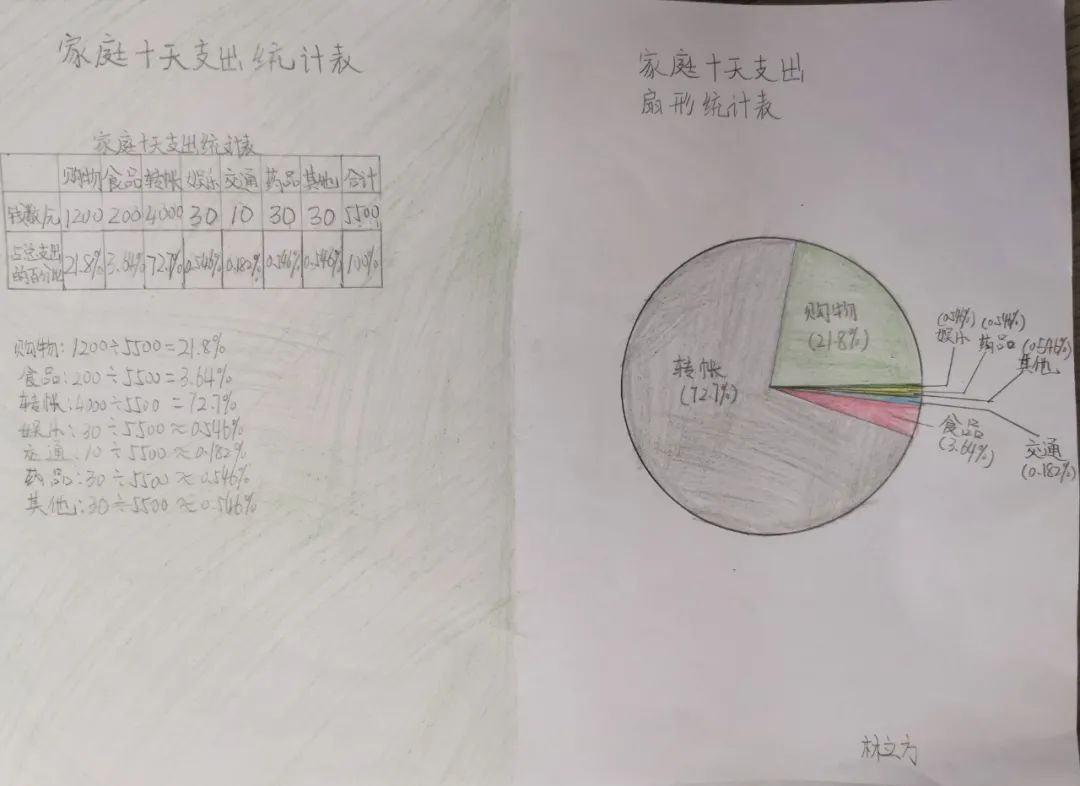 家庭十天支出统计表
家庭十天支出统计表
购物 食品 转帐 娱乐 交通 药品 其他 合计
钱数/元 1200 200 4000 30 10 30 30 5500
占总支出的百分比 21.8% 3.64% 72.7% 0.546% 0.182% 0.546% 0.546% 100%
购物:1200÷5500=21.8%
食品:200÷5500=3.64%
转帐:4000÷5500=72.7%
娱乐:30÷5500≈0.546%
交通:10÷5500≈0.182%
药品:30÷5500≈0.546%
其他:30÷5500≈0.546%
家庭十天支出
扇形统计表
购物
(21.8%)
转帐
(72.7%)
(0.546%)
娱乐
(0.546%)
药品
(0.546%)
其他
食品
(3.64%)
交通
(0.182%)
林立方